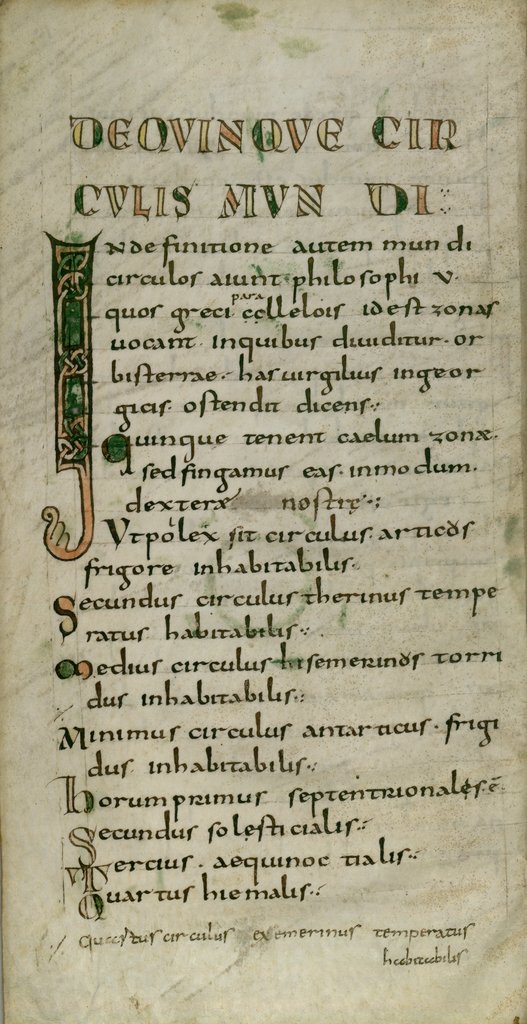 DE QVINQVE CIR
CVLIS MVN DI
IN definitione autem mundi
circulos aiunt philosophi v.
para
quos greci cclelois id est zonas
uocant. in quibus diuiditur. or
bis terrae. has uirgilius in geor
gicis. ostendit dicens.
quinque tenent caelum zonæ.
sed fingamus eas. in modum.
dexteræ nostrę.
Vt polex sit circulus. articos
frigore inhabitabilis.
Secundus circulus therinus tempe
ratus habitabilis.
medius circulus hisemerinos torri
dus inhabitabilis.
Minimus circulus antarticus. frigi
dus inhabitabilis.
horum primus septentrionales. ē
Secundus solesticialis.
Tercius. aequinoctialis.
Quartus hiemalis.
circulus exemerinus temperatus
habitabilis